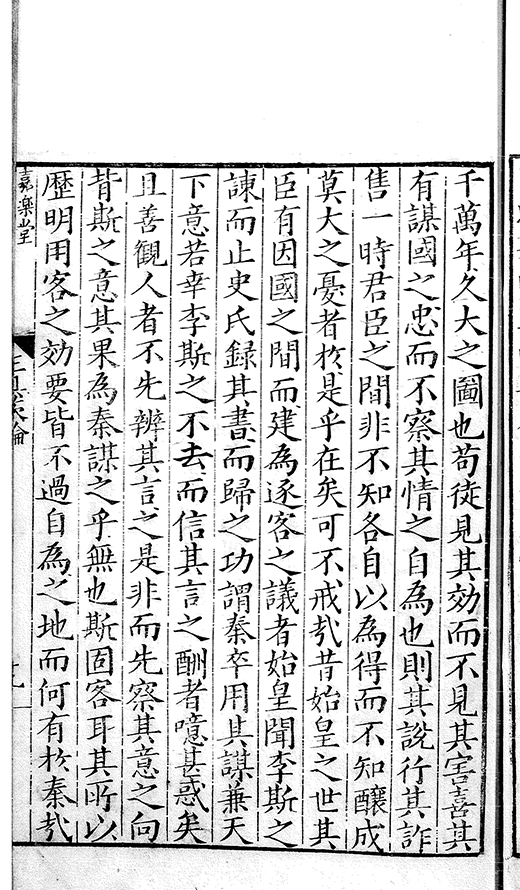 千萬年久大之圖也苟徒見其効而不見其害喜其
有謀國之忠而不察其情之自為也則其說行其詐
售一時君臣之間非不知各自以為得而不知釀成
莫大之憂者於是乎在矣可不戒㢤昔始皇之世其
臣有因國之間而建為逐客之議者始皇聞李斯之
諫而止史氏録其書而歸之功謂秦卒用其謀兼天
下意若幸李斯之不去而信其言之酬者噫甚惑矣
且善觀人者不先辨其言之是非而先察其意之向
背斯之意其果為秦謀之乎無也斯固客耳其所以
歷明用客之効要皆不過自為之地而何有於秦㢤
嘉樂堂
論